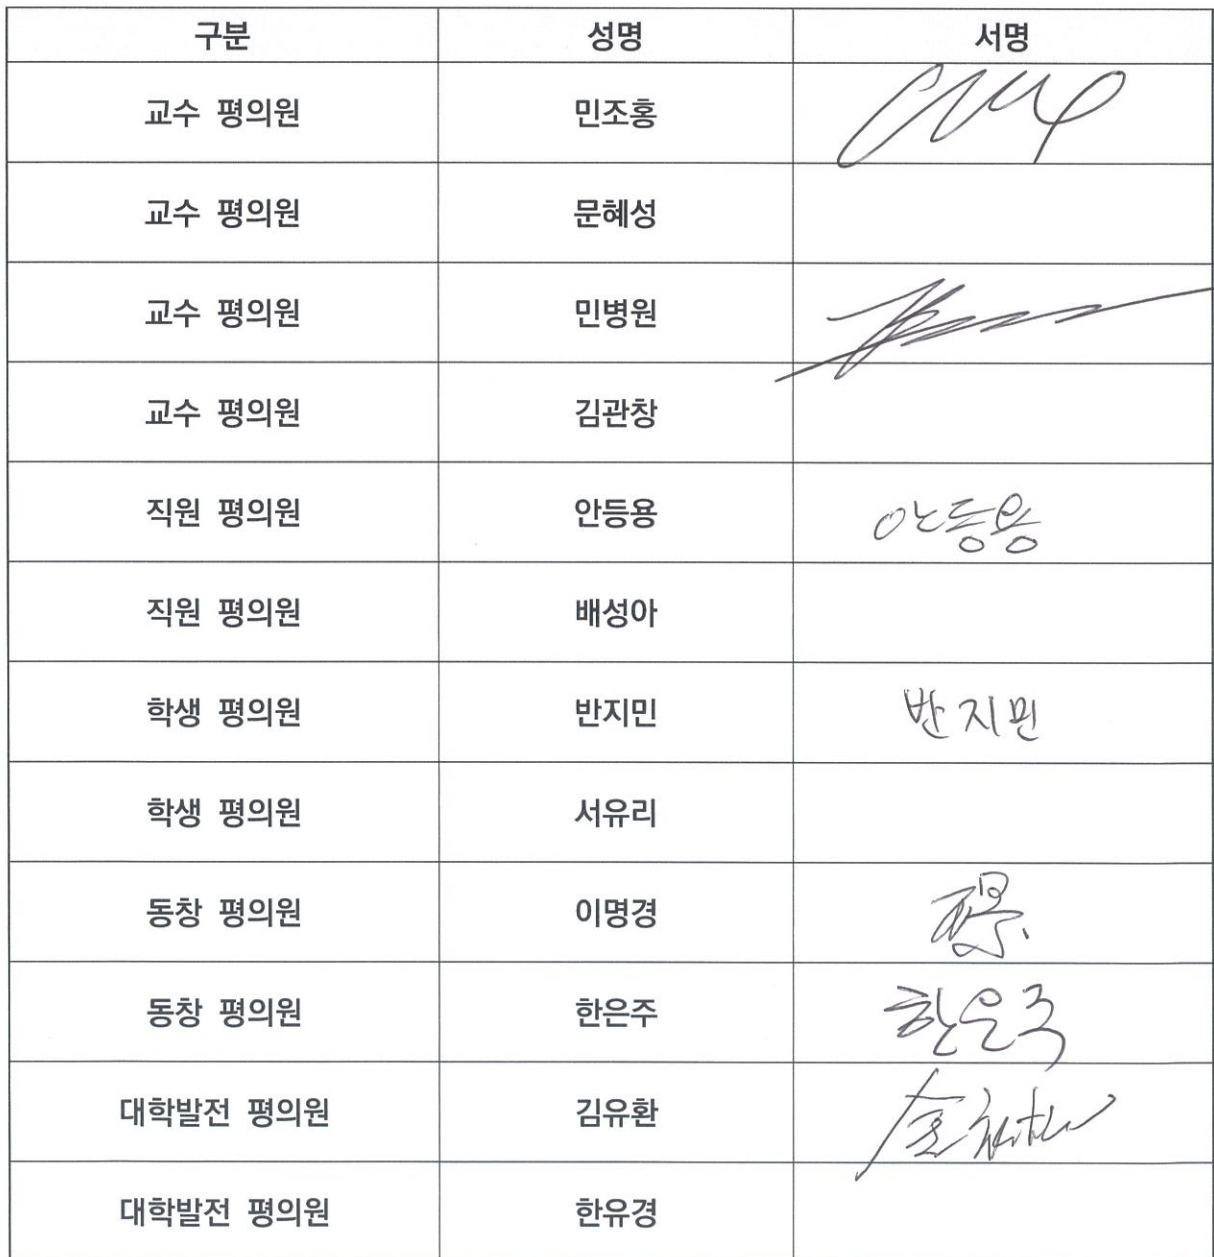 구분 성명 서명
교수 평의원 민조홍
교수 평의원 문혜성
교수 평의원 민병원
교수 평의원 김관창
직원 평의원 안등용 안등용
직원 평의원 배성아
학생 평의원 반지민 반지민
학생 평의원 서유리
동창 평의원 이명경
동창 평의원 한은주 한은주
대학발전 평의원 김유환
대학발전 평의원 한유경